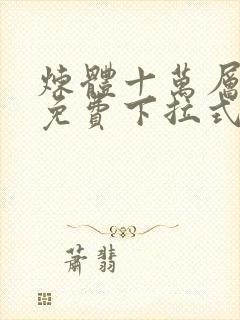 煉體十萬層
免費下拉式
蕭翡